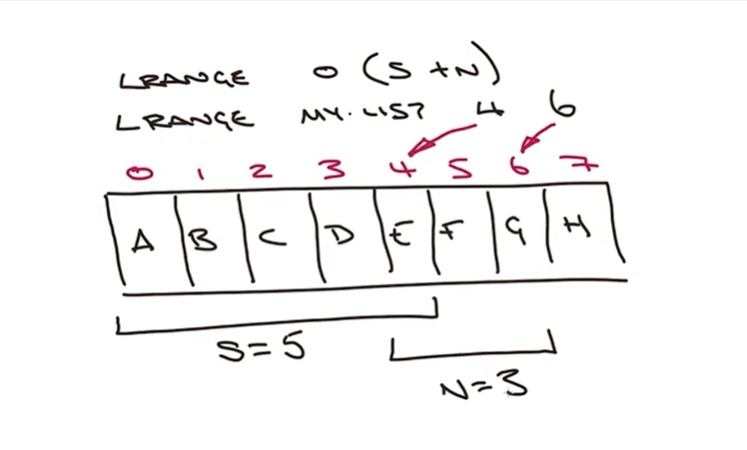 LRANGE O (S+N)
LRANGE MY.LIST 4 6
0 1 2 3 4 5 6 7
A B C D E F G H
S=5
N=3